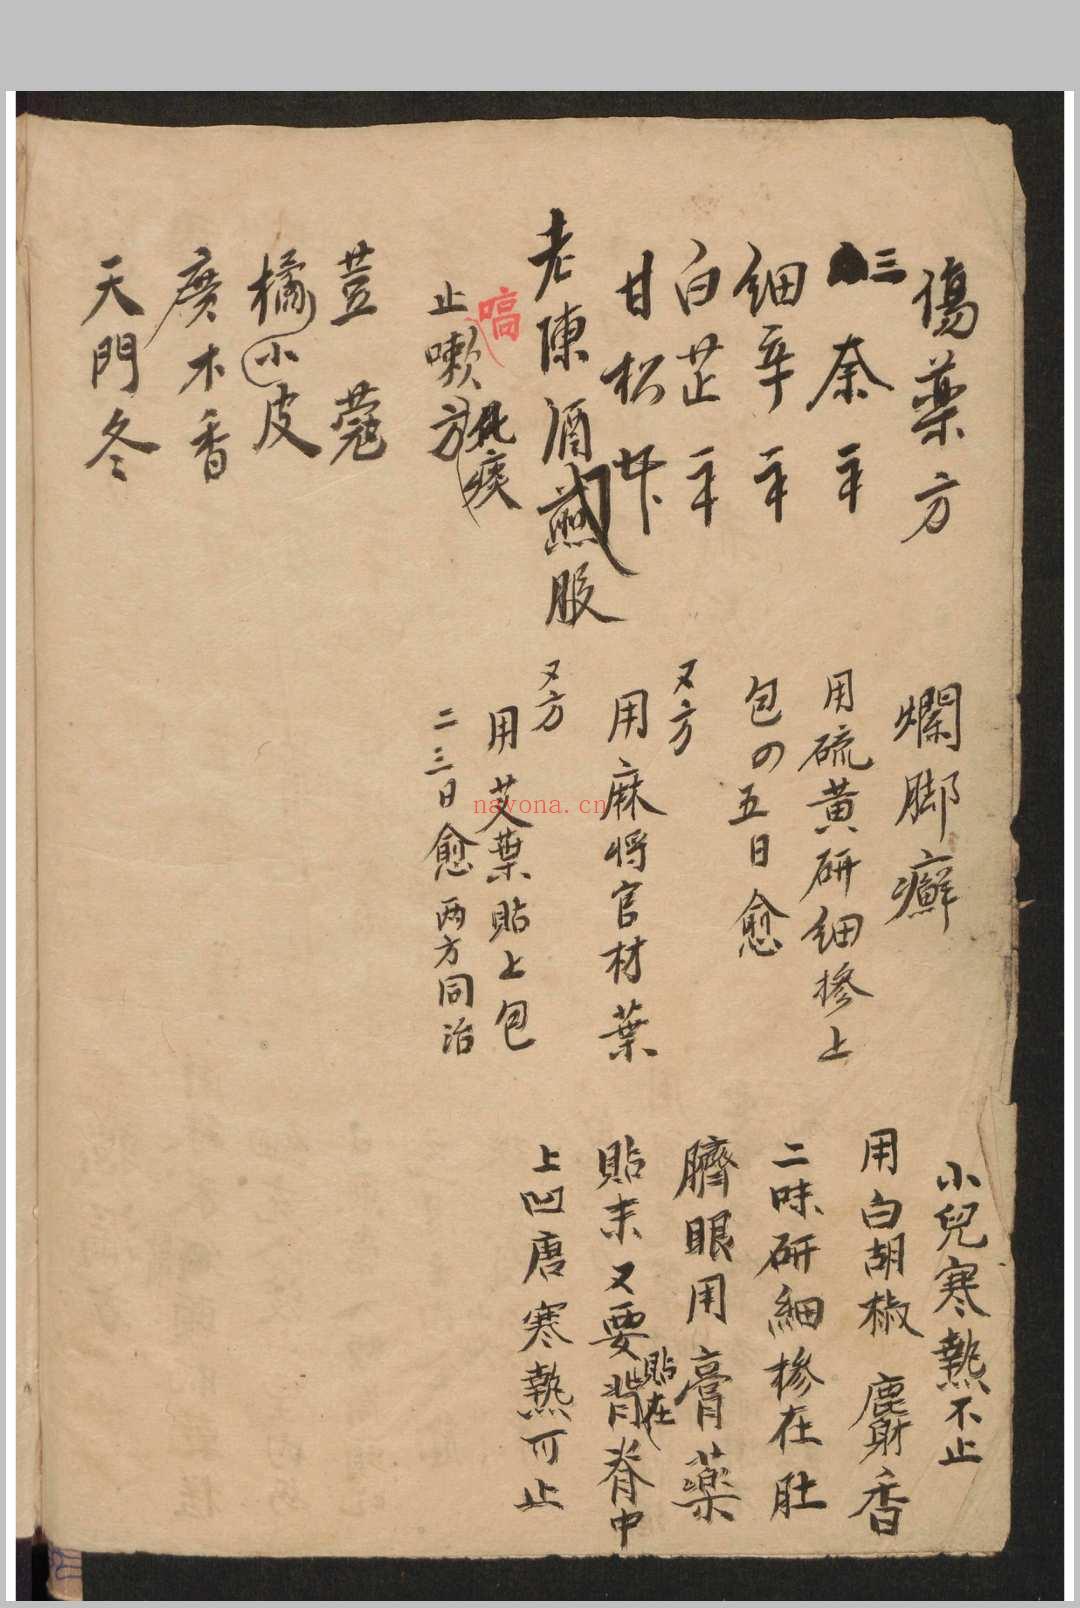 傷藥方
三奈
細辛
白芷
甘松
老陳酒煎服
嗃
止嗽化痰方
荳蔻
橘小皮
廣木香
天門冬
爛脚癬
用硫黃研細摻上
包四五日愈
又方
用麻將官材葉
又方
用艾葉貼上包
二三日愈两方同治
小兒寒熱不止
用白胡椒 麝香
二味研細摻在肚
臍眼用膏藥
貼末又要貼在背脊中
上凹唐寒熱可止
nayona.cn